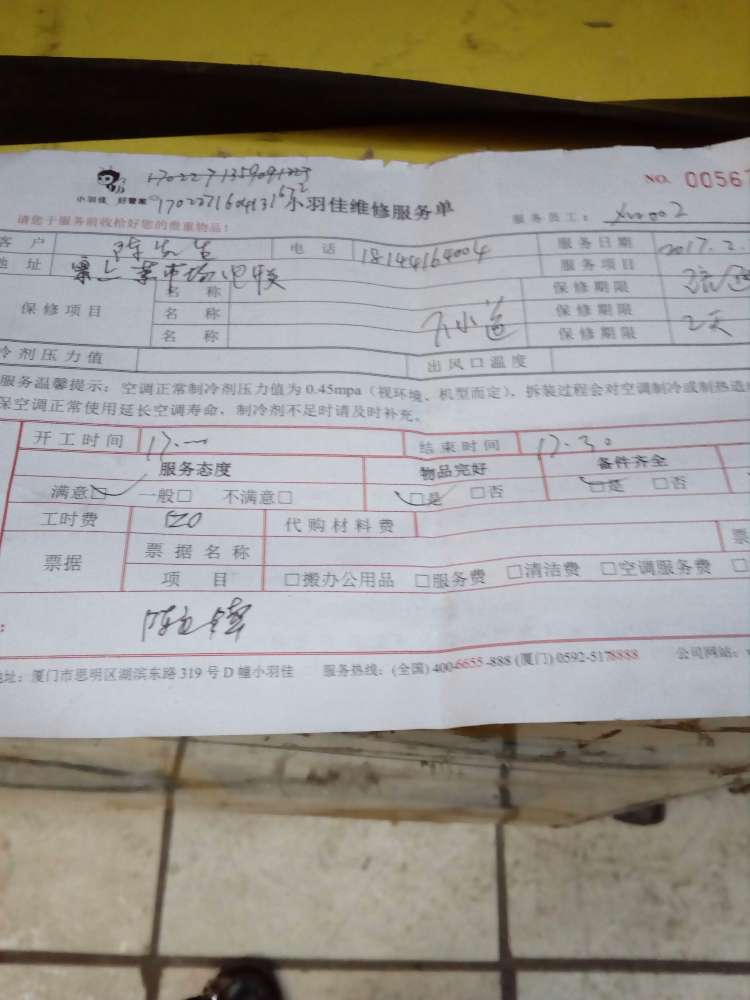 NO. 0056
小羽佳 好管家
小羽佳维修服务单
服务员工：
请您于服务前收拾好您的贵重物品！
客 户 陈先生 电 话 18144164004 服务日期 2017.2.
地 址 菜市场 服务项目
保修项目 名 称 保修期限
名 称 保修期限
名 称 保修期限 2天
冷剂压力值 出风口温度
服务温馨提示：空调正常制冷剂压力值为 0.45mpa（视环境、机型而定），拆装过程会对空调制冷或制热造
保空调正常使用延长空调寿命，制冷剂不足时请及时补充。
开工时间 17.00 结束时间 17.30
服务态度 物品完好 备件齐全
满意□ 一般□ 不满意□ □是 □否 □是 □否
工时费 120 代购材料费
票据 票据名称 票
项 目 □搬办公用品 □服务费 □清洁费 □空调服务费 □
地址：厦门市思明区湖滨东路 319 号 D 幢小羽佳 服务热线：(全国) 400-6655-888 (厦门) 0592-5178888 公司网站：